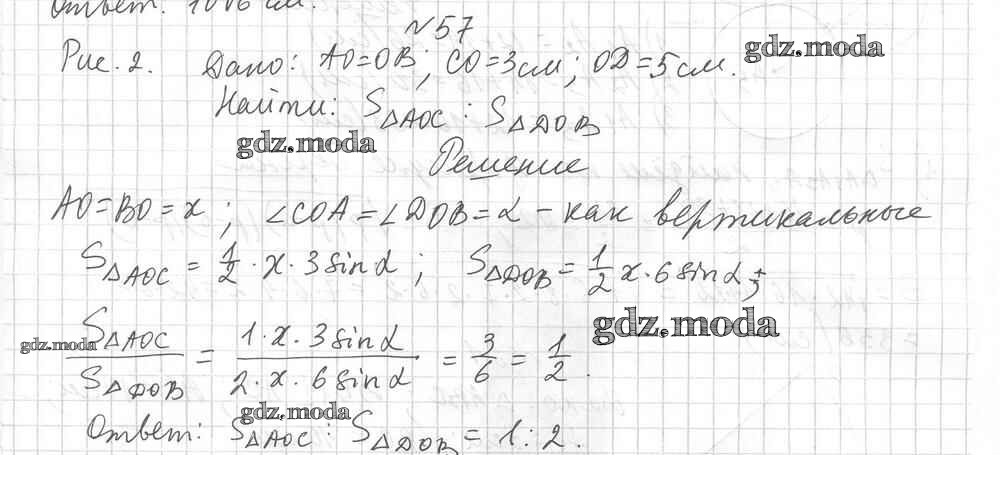 Ответ: 1006 см.
№57
Рис. 2. Дано: AO=OB; CO=3см; OD=5см.
gdz.moda
Найти: S△AOC : S△DOB
gdz.moda
Решение
AO=BO=x; ∠COA=∠DOB=α – как вертикальные
S△AOC = 1/2 · x · 3 sin α; S△DOB = 1/2 x · 6 sin α;
gdz.moda
gdz.moda
S△AOC / S△DOB = 1·x·3 sin α / 2·x·6 sin α = 3/6 = 1/2.
gdz.moda
Ответ: S△AOC : S△DOB = 1:2.